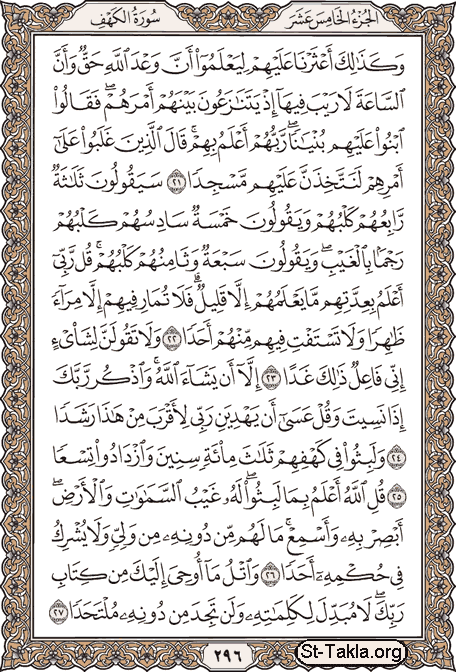 الجزء الخامس عشر
سورة الكهف
وَكَذَٰلِكَ أَعْثَرْنَا عَلَيْهِمْ لِيَعْلَمُوٓا۟ أَنَّ وَعْدَ ٱللَّهِ حَقٌّ وَأَنَّ
ٱلسَّاعَةَ لَا رَيْبَ فِيهَآ إِذْ يَتَنَٰزَعُونَ بَيْنَهُمْ أَمْرَهُمْ ۖ فَقَالُوا۟
ٱبْنُوا۟ عَلَيْهِم بُنْيَٰنًا ۖ رَّبُّهُمْ أَعْلَمُ بِهِمْ ۚ قَالَ ٱلَّذِينَ غَلَبُوا۟ عَلَىٰٓ
أَمْرِهِمْ لَنَتَّخِذَنَّ عَلَيْهِم مَّسْجِدًا ٢١ سَيَقُولُونَ ثَلَٰثَةٌ
رَّابِعُهُمْ كَلْبُهُمْ وَيَقُولُونَ خَمْسَةٌ سَادِسُهُمْ كَلْبُهُمْ
رَجْمًۢا بِٱلْغَيْبِ ۖ وَيَقُولُونَ سَبْعَةٌ وَثَامِنُهُمْ كَلْبُهُمْ ۚ قُل رَّبِّىٓ
أَعْلَمُ بِعِدَّتِهِم مَّا يَعْلَمُهُمْ إِلَّا قَلِيلٌ ۗ فَلَا تُمَارِ فِيهِمْ إِلَّا مِرَآءً
ظَٰهِرًا وَلَا تَسْتَفْتِ فِيهِم مِّنْهُمْ أَحَدًا ٢٢ وَلَا تَقُولَنَّ لِشَا۟ىْءٍ
إِنِّى فَاعِلٌ ذَٰلِكَ غَدًا ٢٣ إِلَّآ أَن يَشَآءَ ٱللَّهُ ۚ وَٱذْكُر رَّبَّكَ
إِذَا نَسِيتَ وَقُلْ عَسَىٰٓ أَن يَهْدِيَنِ رَبِّى لِأَقْرَبَ مِنْ هَٰذَا رَشَدًا
٢٤ وَلَبِثُوا۟ فِى كَهْفِهِمْ ثَلَٰثَ مِا۟ئَةٍ سِنِينَ وَٱزْدَادُوا۟ تِسْعًا
٢٥ قُلِ ٱللَّهُ أَعْلَمُ بِمَا لَبِثُوا۟ ۖ لَهُۥ غَيْبُ ٱلسَّمَٰوَٰتِ وَٱلْأَرْضِ ۖ
أَبْصِرْ بِهِۦ وَأَسْمِعْ ۚ مَا لَهُم مِّن دُونِهِۦ مِن وَلِىٍّ وَلَا يُشْرِكُ
فِى حُكْمِهِۦٓ أَحَدًا ٢٦ وَٱتْلُ مَآ أُوحِىَ إِلَيْكَ مِن كِتَابِ
رَبِّكَ ۖ لَا مُبَدِّلَ لِكَلِمَٰتِهِۦ وَلَن تَجِدَ مِن دُونِهِۦ مُلْتَحَدًا ٢٧
٢٩٦
St-Takla.org